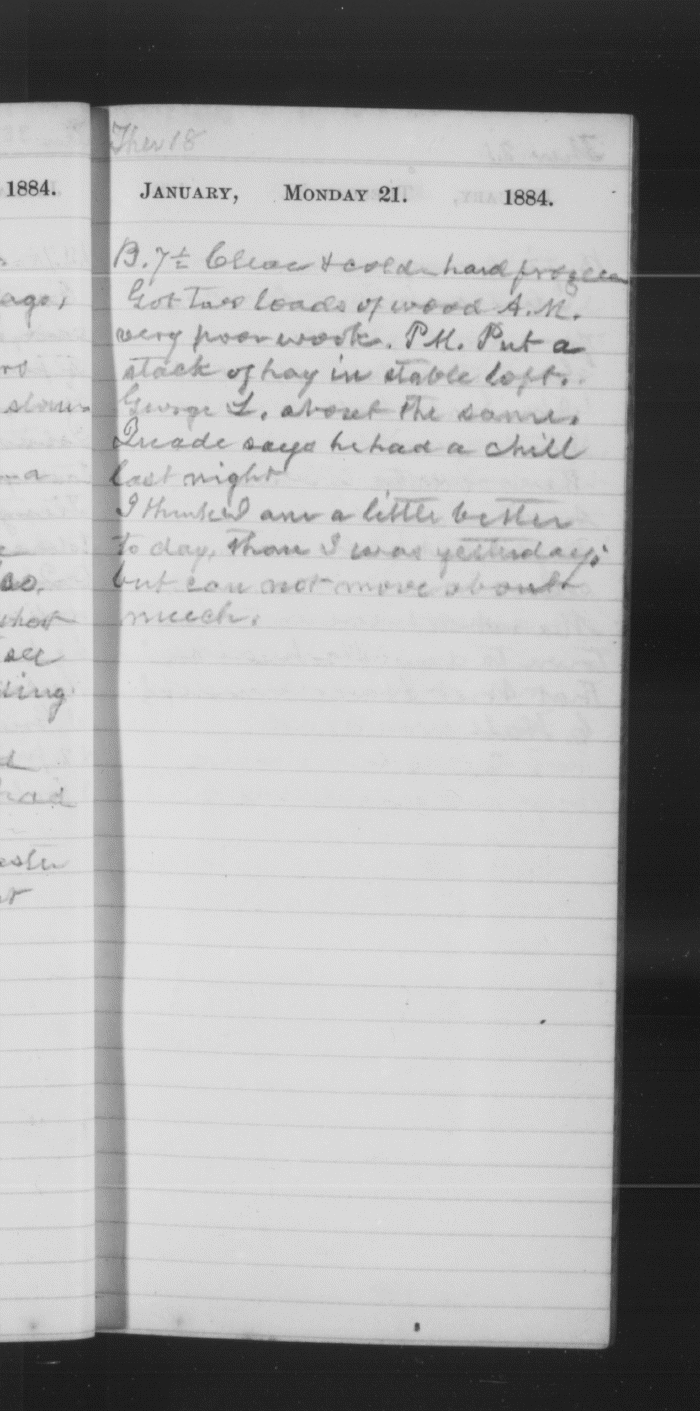 1884.
ago,
rs
ma
what
see
ling
had
Ther 18
JANUARY, MONDAY 21. 1884.
B. 7½ Clear & cold hard frozen
Got two loads of wood A.M.
very poor wook. P.M. Put a
stack of hay in stable loft.
George L. about the same.
Quade says he had a chill
last night
I think I am a little better
to day, than I was yesterday;
but can not move about
much.